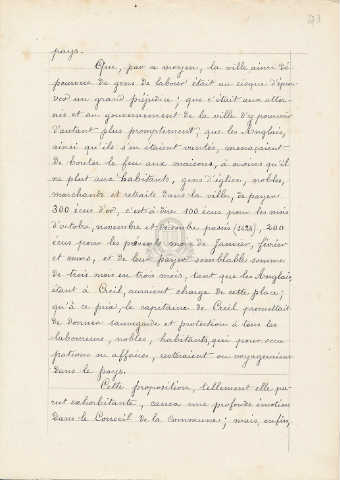 73
pays.
Que, par ce moyen, la ville ainsi dé-
pourvue de gens de labour était au risque d'éprou-
ver un grand préjudice; que c'était aux attor-
nés et au gouvernement de la ville d'y pourvoir
d'autant plus promptement, que les Anglais,
ainsi qu'ils s'en étaient vantés, menaçaient
de bouter le feu aux maisons, à moins qu'il
ne plut aux habitants, gens d'église, nobles,
marchands et retraits dans la ville, de payer
300 écus d'or, c'est à dire 100 écus pour les mois
d'octobre, novembre et décembre passés, 200
écus pour les présents mois de Janvier, février
et mars, et de leur payer semblable somme
de trois mois en trois mois, tant que les Anglais,
étant à Creil, auraient charge de cette place;
qu'à ce prix, le capitaine de Creil promettait
de donner sauvegarde et protection à tous les
laboureurs, nobles, habitants, qui pour occu
pations ou affaires, resteraient ou voyageraient
dans le pays.
Cette proposition, tellement elle pa-
rut exhorbitante, causa une profonde émotion
dans le Conseil de la Commune; mais, enfin,